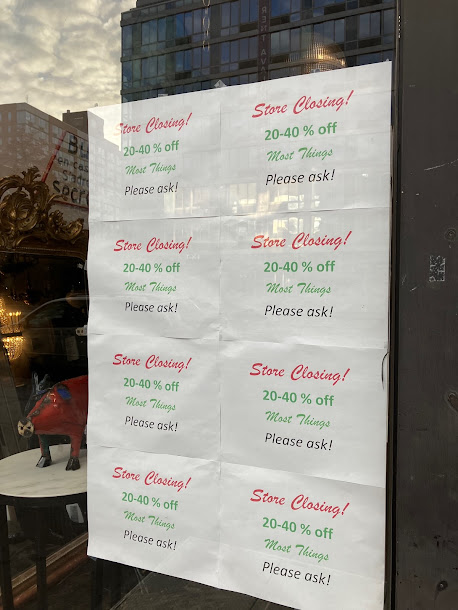 Store Closing!
20-40 % off
Most Things
Please ask!
Store Closing!
20-40 % off
Most Things
Please ask!
Store Closing!
20-40 % off
Most Things
Please ask!
Store Closing!
20-40 % off
Most Things
Please ask!
Store Closing!
20-40 % off
Most Things
Please ask!
Store Closing!
20-40 % off
Most Things
Please ask!
Store Closing!
20-40 % off
Most Things
Please ask!
Store Closing!
20-40 % off
Most Things
Please ask!